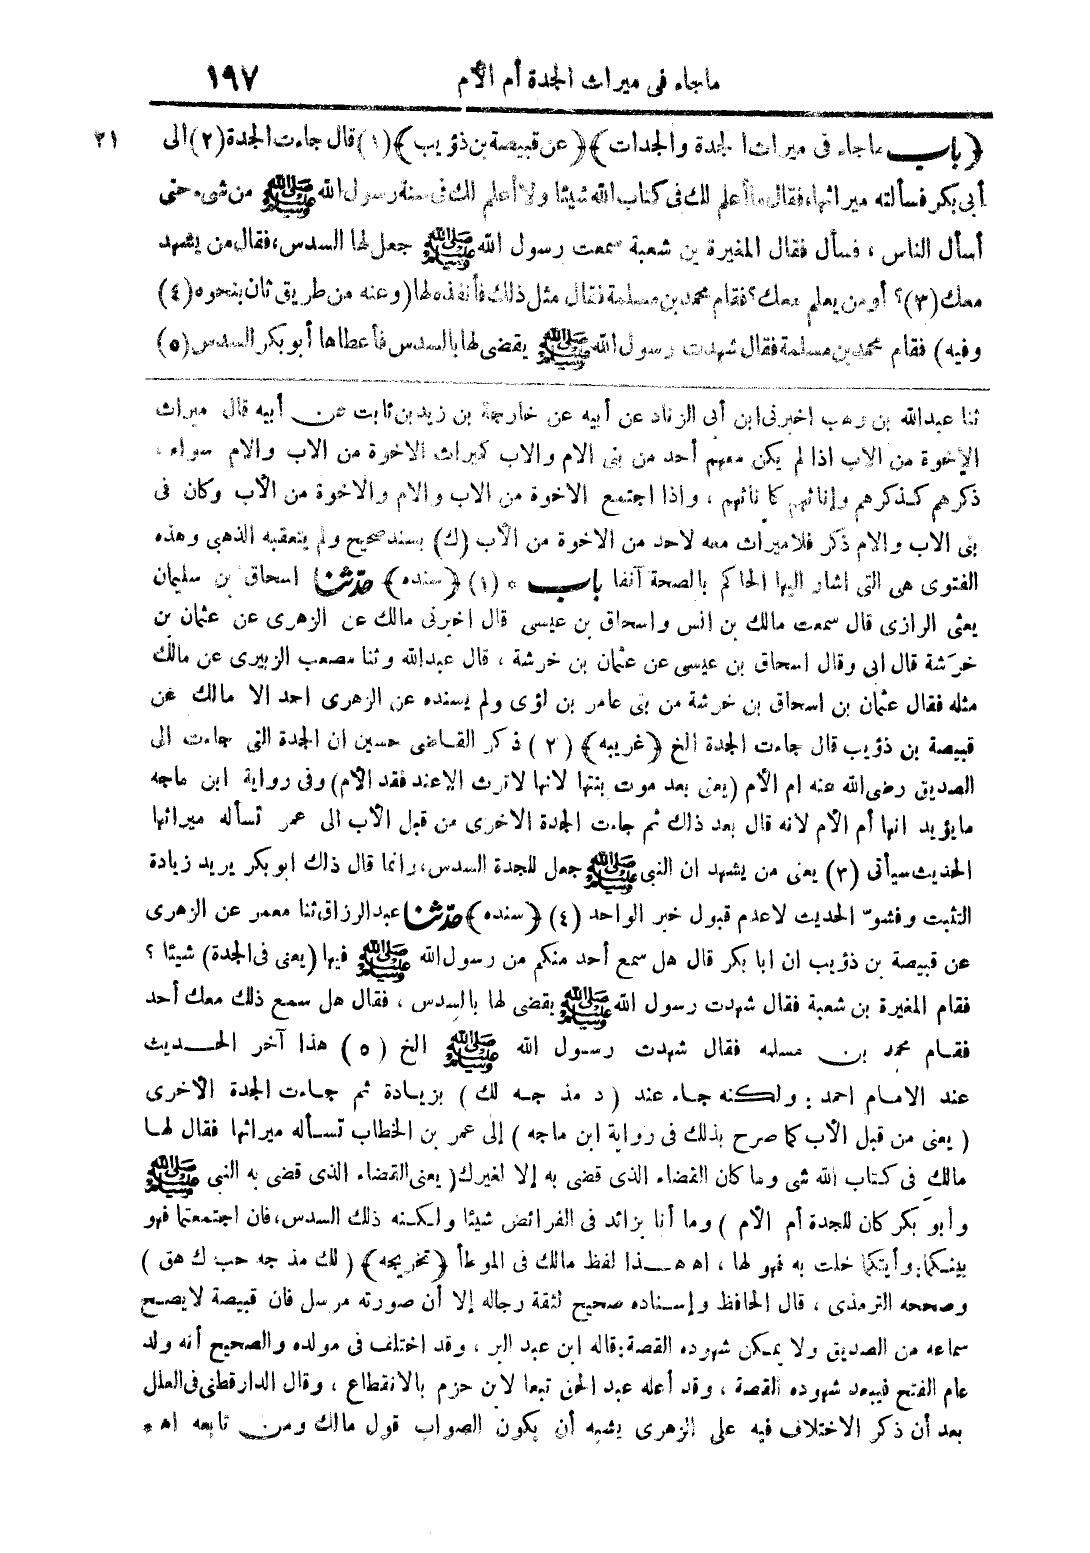 ماجاء فى ميراث الجدة أم الأم ١٩٧
﴿ باب ماجاء فى ميراث الجدة والجدات ﴾ ﴿ عن قبيصة بن ذؤيب ﴾ (١) قال جاءت الجدة (٢) الى ٢١
أبى بكر فسألته ميراثها، فقال ما أعلم لك فى كتاب الله شيئا ولا أعلم لك فى سنة رسول الله ﷺ من شىء حتى
أسأل الناس ، فسأل فقال المغيرة بن شعبة سمعت رسول الله ﷺ جعل لها السدس، فقال من يشهد
معك (٣)؟ أو من يعلم معك؟ فقام محمد بن مسلمة فقال مثل ذلك فأنفذه لها (وعنه من طريق ثان بنحوه (٤)
وفيه) فقام محمد بن مسلمة فقال شهدت رسول الله ﷺ يقضى لها بالسدس فأعطاها أبو بكر السدس (٥)
ثنا عبدالله بن وهب اخبرنى ابن أبى الزناد عن أبيه عن خارجة بن زيد بن ثابت عن أبيه قال ميراث
الإخوة من الاب اذا لم يكن معهم أحد من بنى الام والاب كميراث الاخوة من الاب والام سواء ،
ذكرهم كذكرهم وإناثهم كاناثهم ، واذا اجتمع الاخوة من الاب والام والاخوة من الأب وكان فى
بنى الاب والام ذكر فلاميراث معه لاحد من الاخوة من الأب (ك) بسند صحيح ولم يتعقبه الذهبى وهذه
الفتوى هى التى اشار اليها الحاكم بالصحة آنفا باب * (١) ﴿ سنده ﴾ حدثنا اسحاق بن سليمان
يعنى الرازى قال سمعت مالك بن انس واسحاق بن عيسى قال اخبرنى مالك عن الزهرى عن عثمان بن
خرشة قال ابى وقال اسحاق بن عيسى عن عثمان بن خرشة ، قال عبدالله وثنا مصعب الزبيرى عن مالك
مثله فقال عثمان بن اسحاق بن خرشة من بنى عامر بن لؤى ولم يسنده عن الزهرى احد الا مالك عن
قبيصة بن ذؤيب قال جاءت الجدة الخ ﴿ غريبه ﴾ (٢) ذكر القاضى حسين ان الجدة التى جاءت الى
الصديق رضى الله عنه ام الأم (يعنى بعد موت بنتها لانها لاترث الاعند فقد الأم) وفى رواية ابن ماجه
مايؤيد انها أم الأم لانه قال بعد ذلك ثم جاءت الجدة الاخرى من قبل الأب الى عمر تسأله ميراثها
الحديث سيأتى (٣) يعنى من يشهد ان النبى ﷺ جعل للجدة السدس، وانما قال ذلك ابو بكر يريد زيادة
التثبت وفشوّ الحديث لاعدم قبول خبر الواحد (٤) ﴿ سنده ﴾ حدثنا عبد الرزاق ثنا معمر عن الزهرى
عن قبيصة بن ذؤيب ان ابا بكر قال هل سمع أحد منكم من رسول الله ﷺ فيها (يعنى فى الجدة) شيئا ؟
فقام المغيرة بن شعبة فقال شهدت رسول الله ﷺ يقضى لها بالسدس ، فقال هل سمع ذلك معك أحد
فقام محمد بن مسلمه فقال شهدت رسول الله ﷺ الخ (٥) هذا آخر الحديث
عند الامام احمد: ولكنه جاء عند ( د مذ جه لك ) بزيادة ثم جاءت الجدة الأخرى
( يعنى من قبل الأب كما صرح بذلك فى رواية ابن ماجه ) إلى عمر بن الخطاب تسأله ميراثها فقال لها
مالك فى كتاب الله شى وما كان القضاء الذى قضى به إلا لغيرك ( يعنى القضاء الذى قضى به النبى ﷺ
وأبو بكر كان للجدة أم الأم ) وما أنا بزائد فى الفرائض شيئا ولكنه ذلك السدس، فان اجتمعتما فهو
بينكما: وأيتكما خلت به فهو لها ، اه هذا لفظ مالك فى الموطأ ﴿ تخريجه ﴾ ( لك مذ جه حب ك هق )
وصححه الترمذى ، قال الحافظ وإسناده صحيح لثقة رجاله إلا أن صورته مرسل فان قبيصة لايصح
سماعه من الصديق ولا يمكن شهوده القصة: قاله ابن عبد البر ، وقد اختلف فى مولده والصحيح أنه ولد
عام الفتح فيبعد شهوده القصة ، وقد أعله عبد الحق تبعا لابن حزم بالانقطاع ، وقال الدارقطنى فى العلل
بعد أن ذكر الاختلاف فيه على الزهرى يشبه أن يكون الصواب قول مالك ومن تابعه اه *